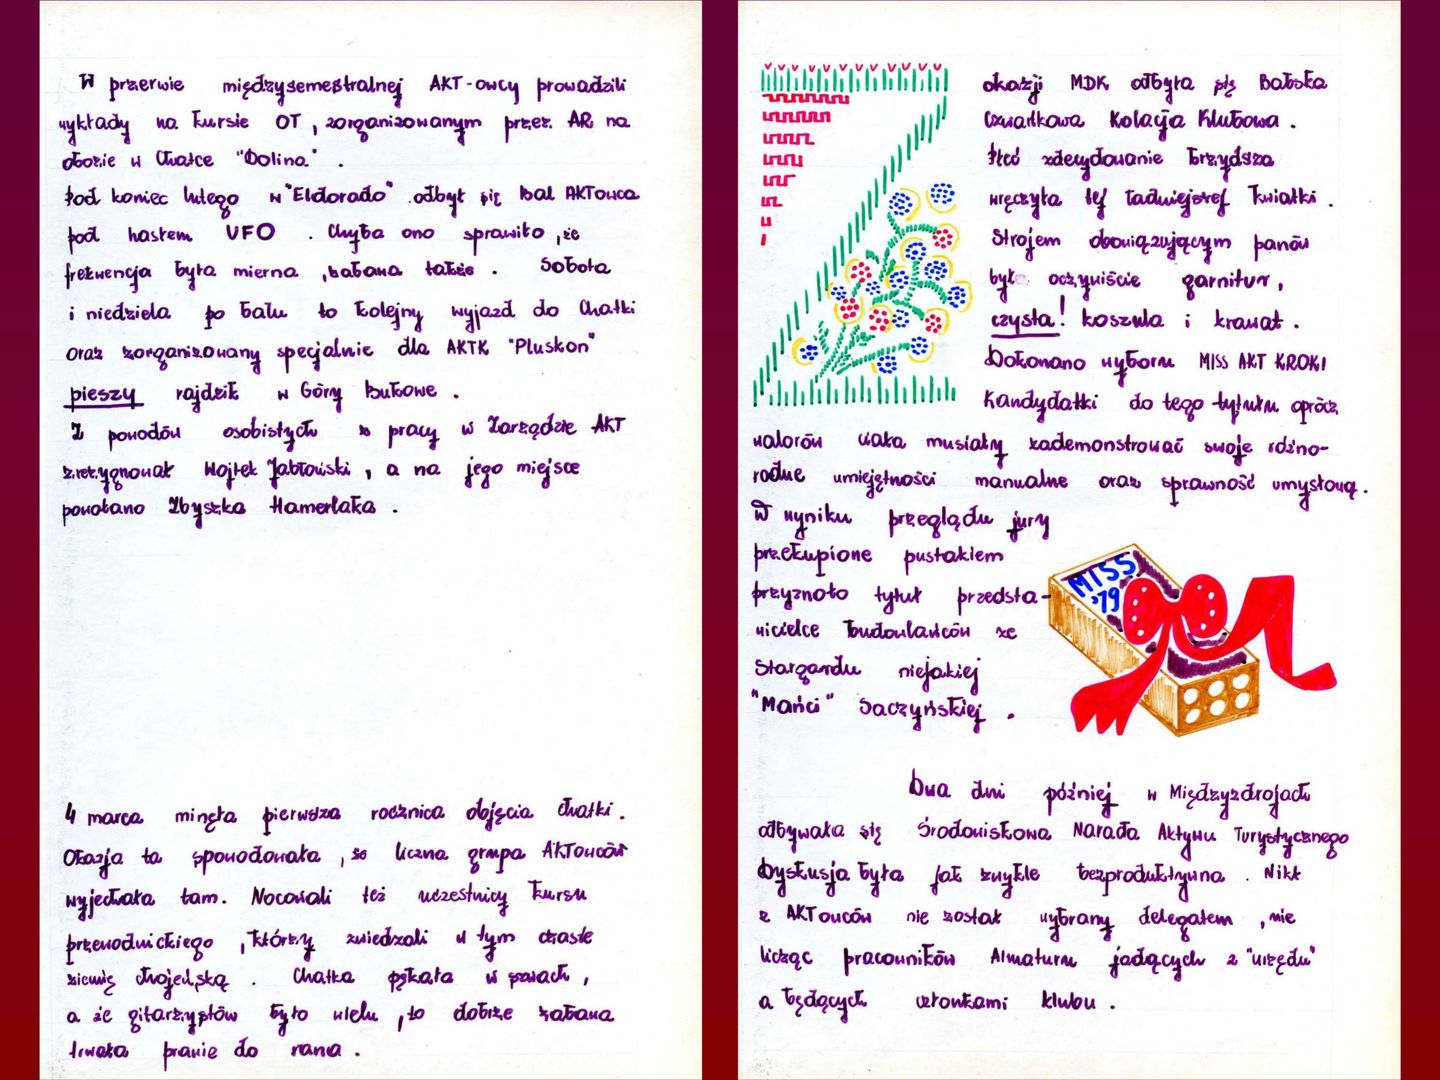 W przerwie międzysemestralnej AKT-owcy prowadzili
wykłady na kursie OT, zorganizowanym przez AR na
obozie w Chatce "Dolina".
Pod koniec lutego w "Eldorado" odbył się Bal AKTowca
pod hasłem UFO. Chyba ono sprawiło, że
frekwencja była mierna, zabawa także. Sobota
i niedziela po balu to kolejny wyjazd do Chatki
oraz zorganizowany specjalnie dla AKTK "Pluskon"
pieszy rajdzik w Góry Bukowe.
Z powodów osobistych z pracy w Zarządzie AKT
zrezygnował Wojtek Jabłoński, a na jego miejsce
powołano Zbyszka Hamerlaka.
4 marca minęła pierwsza rocznica objęcia chatki.
Okazja ta spowodowała, że liczna grupa AKTowców
wyjechała tam. Nocowali też uczestnicy kursu
przewodnickiego, którzy zwiedzali w tym czasie
ziemię chojeńską. Chatka pękała w szwach,
a że gitarzystów było wielu, to dobrze zabawa
trwała prawie do rana.
Z okazji MDK odbyła się Babska
Czwartkowa Kolacja Klubowa.
Płeć zdecydowanie brzydsza
wręczyła tej ładniejszej kwiatki.
Strojem obowiązującym panów
był oczywiście garnitur,
czysta! koszula i krawat.
Dokonano wyboru MISS AKT KROKI
Kandydatki do tego tytułu oprócz
walorów ciała musiały zademonstrować swoje różno-
rodne umiejętności manualne oraz sprawność umysłową.
W wyniku przeglądu jury
przekupione pustakiem
przyznało tytuł przedsta-
wicielce budowlańców ze
Stargardu niejakiej
"Mańci" Saczyńskiej.
MISS
'79
Dwa dni później w Międzyzdrojach
odbywała się Środowiskowa Narada Aktywu Turystycznego
Dyskusja była jak zwykle bezproduktywna. Nikt
z AKTowców nie został wybrany delegatem, nie
licząc pracowników Almaturu jadących z "urzędu"
a będących członkami klubu.